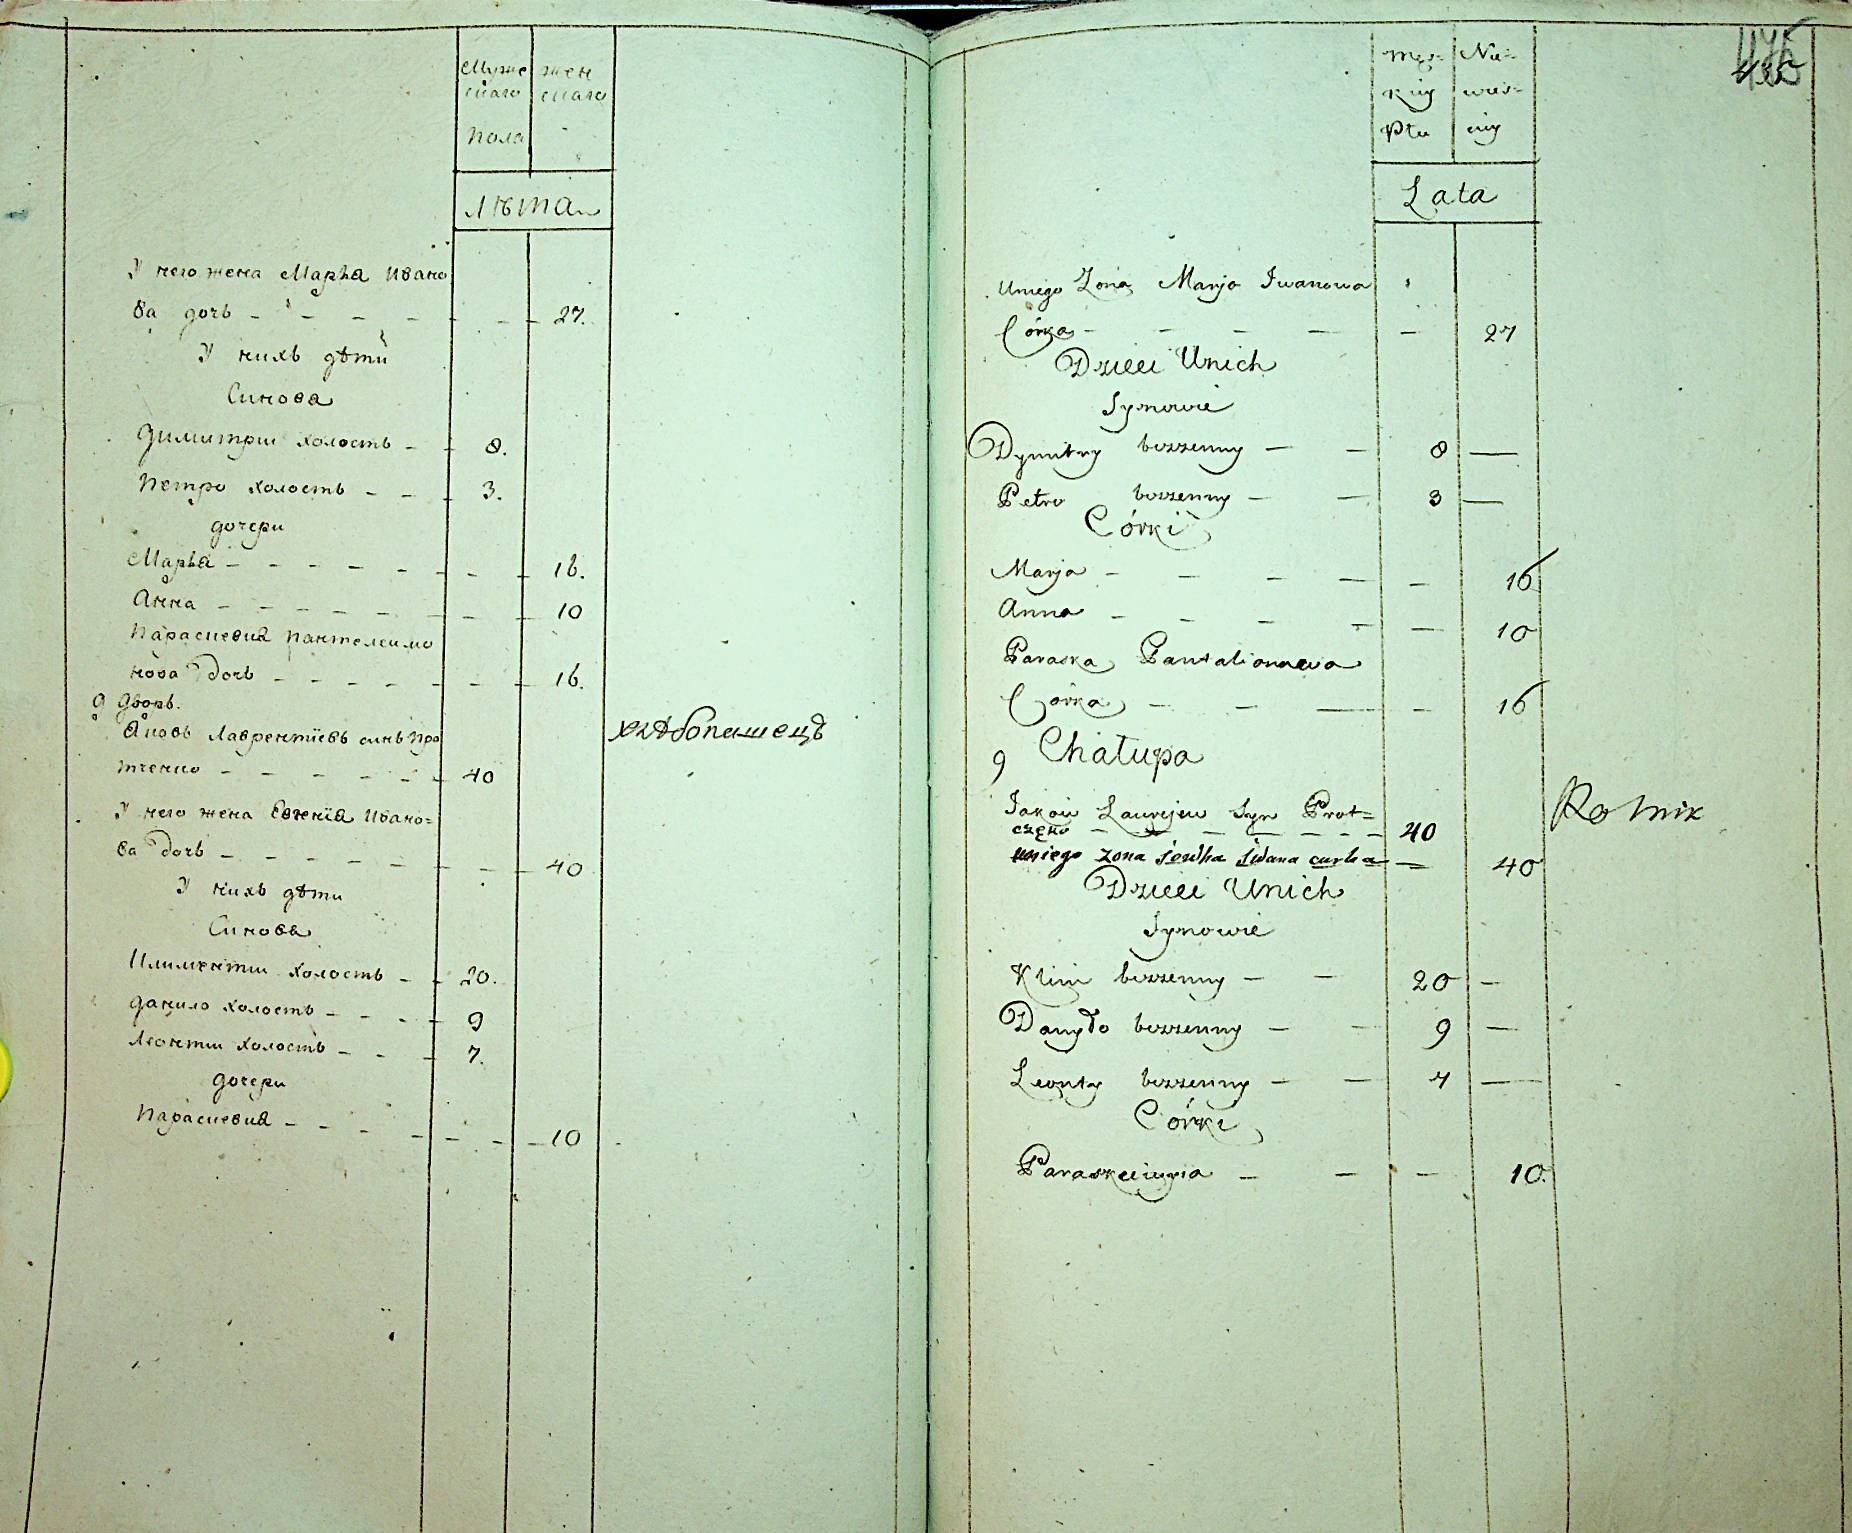 Муже
скаго
пола
жен
скаго
Лѣта
У него жена Марья Ивано
ва дочь 27.
У нихъ дѣти
Синовя
Димитрш холость 8.
Петро холость 3.
дочери
Марья 16.
Анна 10
Параскевия Пантелеимо
нова дочь 16.
9 дворъ.
Яковъ Лаврентіевъ синъ Про
тченко 40
хлѣбопашецъ
У него жена Евгенія Ивано=
ва дочь 40
У нихъ дѣти
Синовя
Климентш холость 20.
данило холость 9
Леонтш холость 7.
дочери
Параскевия 10
Męz=
kiey
Płci
Nie=
wies=
ciey
Lata
Uniego Zona Marja Iwanowa
Córka 27
Dzieci Unich
Synowie
Dymitry bezzenny 8
Petro bezzenny 3
Córki
Marja 16
Anna 10
Paraska Pantalionowa
Córka 16
9 Chałupa
Jakow Lawrejew Syn Prot=
częko 40
Rolnik
uniego zona Jewha Iwana curka 40
Dzieci Unich
Synowie
Klim bezzenny 20
Danyło bezzenny 9
Leonty bezzenny 7
Córki
Paraskewia 10.